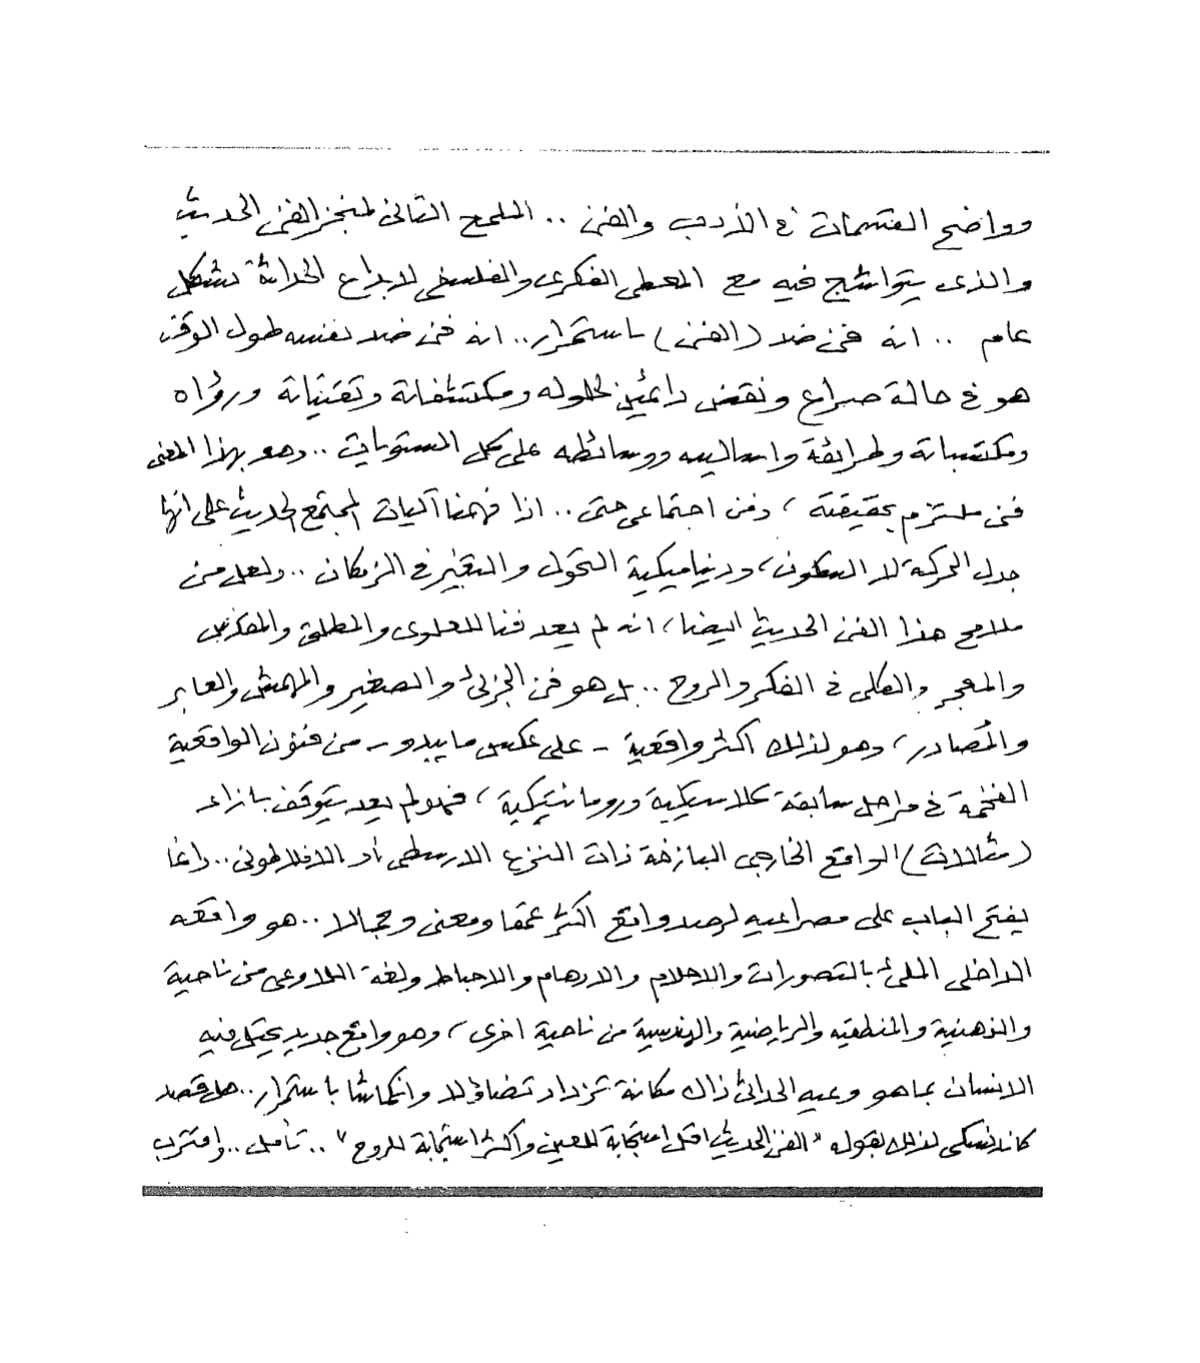 وواضح القسمات في الأدب والفن .. الملمح الثاني لمنجز الفن الحديث
والذي يتواشج فيه مع المعطى الفكري والفلسفي لابداع الحداثة بشكل
عام .. انه فن ضد (الفن) باستمرار .. انه فن ضد نفسه طول الوقت
هو في حالة صراع ونقض دائمين لحلوله ومكتشفاته وتقنياته ورؤاه
ومكتسباته وطرائقه واساليبه ووسائطه على كل المستويات .. وهو بهذا المعنى
فن ملتزم بحقيقته ، وفن اجتماعي حتى .. اذا فهمنا آليات المجتمع الحديث على انها
جدل الحركة لا السكون ، ودنياميكية التحول والتغير في الزمكان .. ولعل من
ملامح هذا الفن الحديث ايضا ، انه لم يعد فنا للعلوى والمطلق والمقدس
والمعجر والكلى في الفكر والروح .. بل هو فن الجزئي والصغير والمهمش والعابر
والمُصادر ، وهو لذلك اكثر واقعية - على عكس ما يبدو - من فنون الواقعية
الفخمة في مراحل سابقة كلاسيكية ورومانتيكية ، فهو لم يعد يتوقف بازاء
(مثالات) الواقع الخارجي البازخة ذات النزع الارسطى أو الافلاطونى .. وانما
يفتح الباب على مصراعيه لرصد واقع اكثر عمقا ومعنى وجمالا .. هو واقعه
الداخلى الملئ بالتصورات والاحلام والاوهام والاحباط ولغة اللاوعى من ناحية
والذهنية والمنطقيه والرياضية والهندسية من ناحية اخرى ، وهو واقع جديد يحتل فيه
الانسان بما هو وعيه الحداثى ذاك مكانة تزداد تضاؤلا وانكماشا باستمرار .. هل قصد
كاندنسكى لذلك بقوله "الفن الحديث اقل استجابة للعين واكثر استجابة للروح" .. تأمل .. واقترب